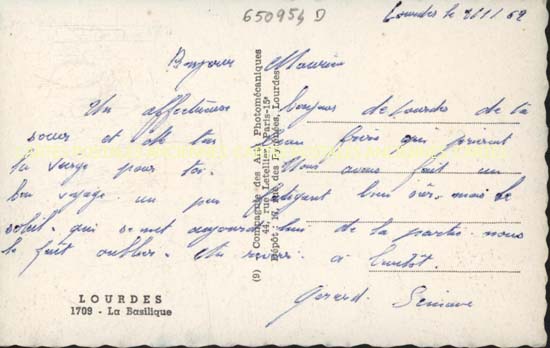 650954 D
Lourdes le 2/1/62
Bonjour Maurice
Un affectueux bonjour de Lourdes de ta
soeur et de ton beau frère qui prient
la vierge pour toi. Nous avons fait un
bon voyage. un peu fatigant bien sûr. mais le
soleil. qui se met aujourd'hui de la partie nous
le fait oublier. Au revoir. à bientôt.
Gerard.
(9) Compagnie des Arts Photomécaniques
44, rue Letellier, Paris-15e
Dépôt : 17, rue des Pyrénées, Lourdes
LOURDES
1709 - La Basilique